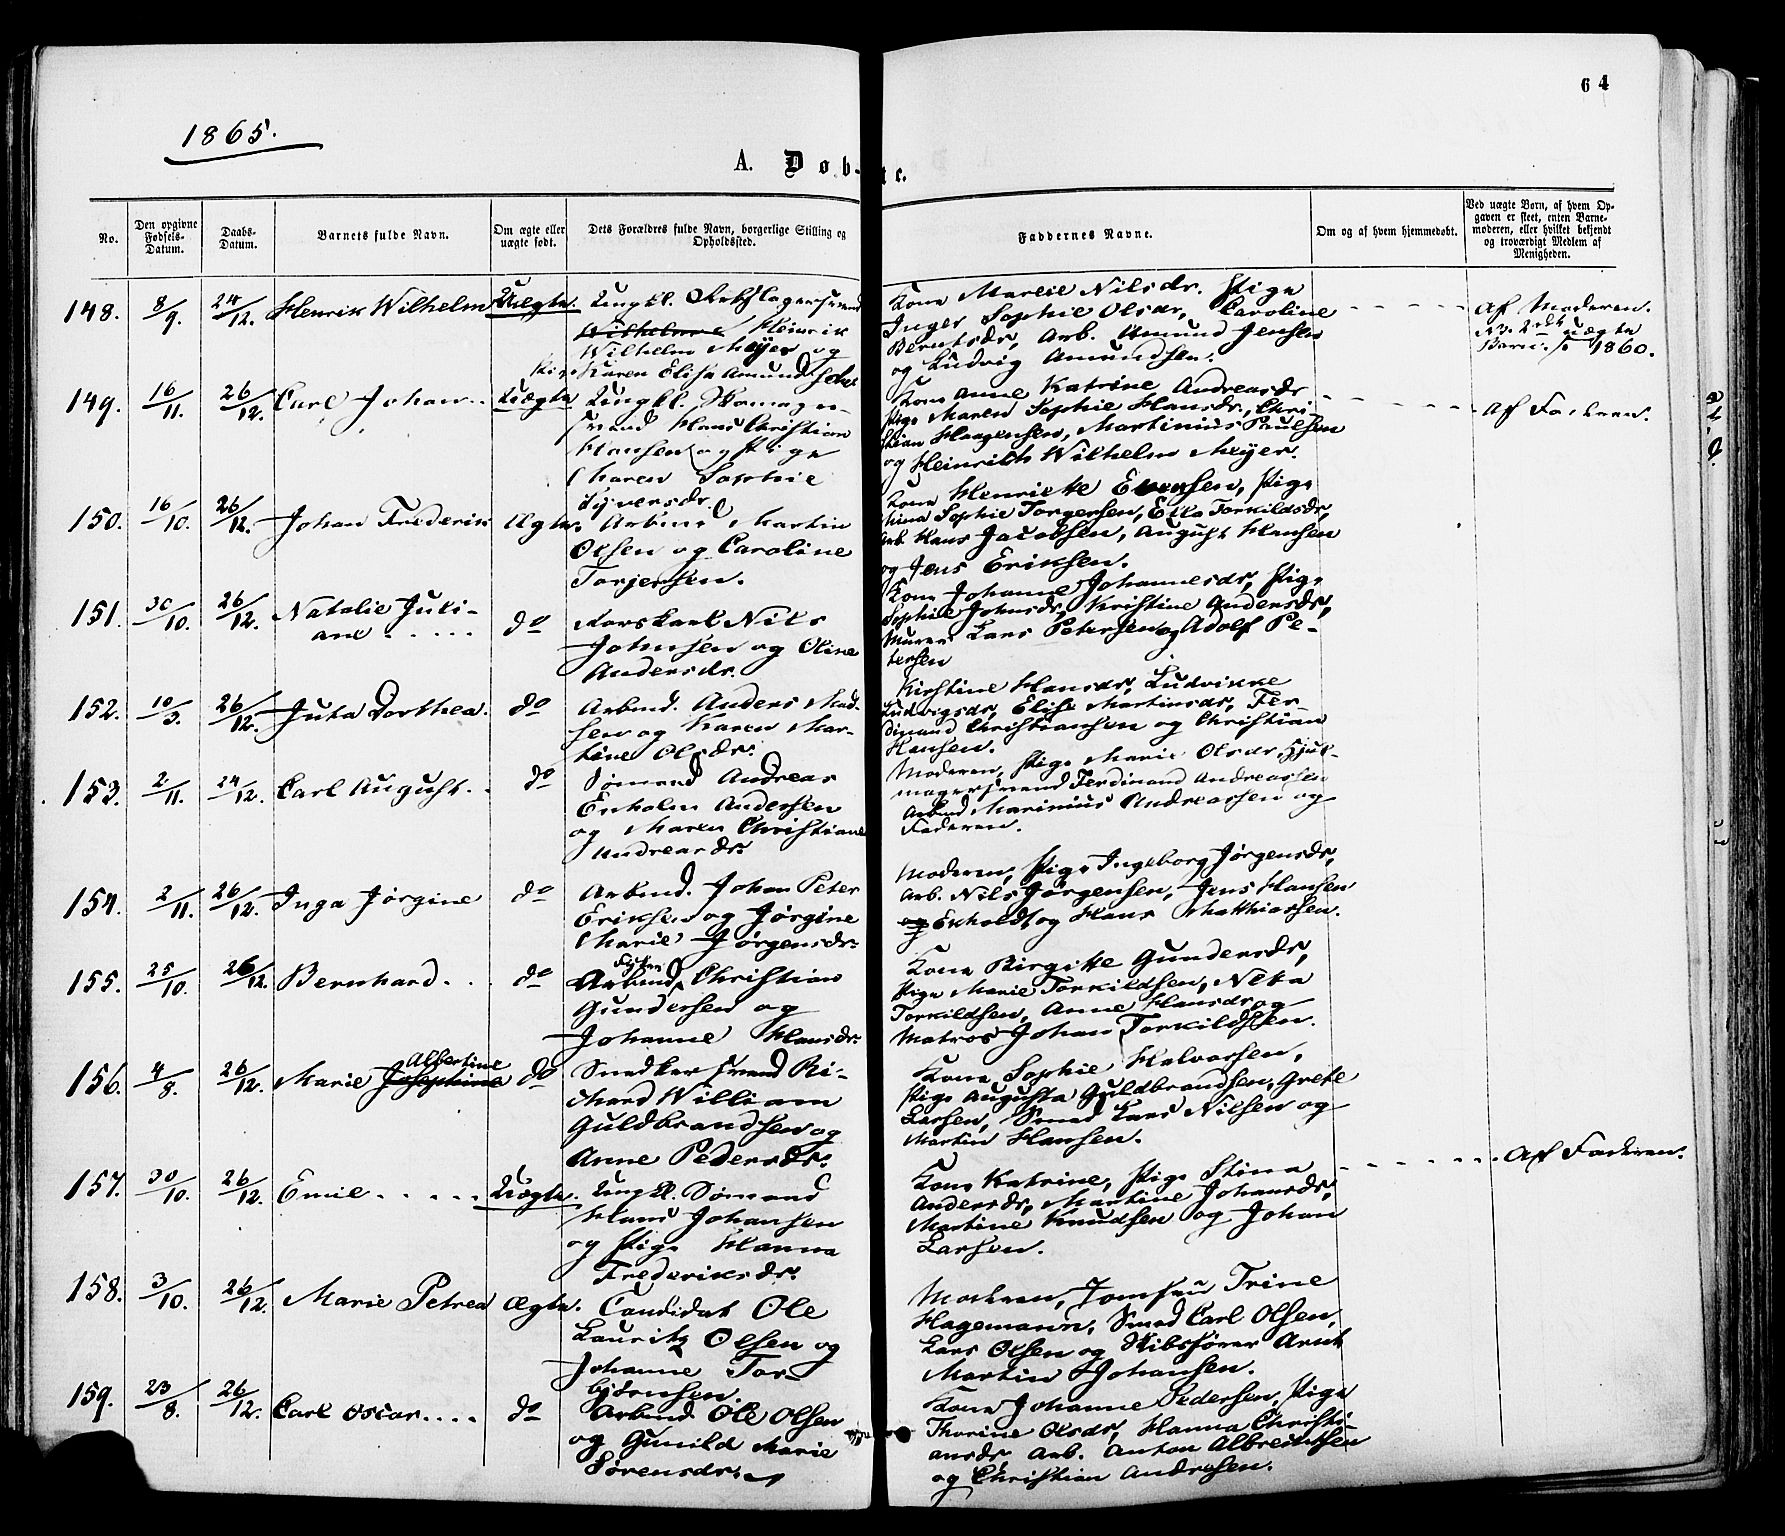 64
1865.
A. Døb-te.
No.
Den opgivne Fødsels-Datum.
Daabs-Datum.
Barnets fulde Navn.
Om ægte eller uægte født.
Dets Forældres fulde Navn, borgerlige Stilling og Opholdssted.
Faddernes Navne.
Om og af hvem hjemmedøbt.
Ved uægte Børn, af hvem Opgaven er skeet, enten Barnemoderen, eller hvilket bekjendt og troværdigt Medlem af Menigheden.
148. 8/9. 24/12. Henrik Wilhelm Uægte.
Ungkl.
Wilhelm Heinrik
Wilhelm Meyer og
Karen Elise Amunds
Kone Marie Nilsdr. Pige
Inger Sophie Olsdr, Caroline
Berntsdr, Arb. Amund Jensen
og Ludvig Amundsen.
Af Moderen.
uægte
Barn 1860.
149. 16/11. 26/12. Carl Johan.. Uægte
Ungkl.
svend Hans Christian
Hansen og Pige
Maren Sophie
Syversdr.
Kone Anne Katrine Andreasdr
Pige Maren Sophie Hansdr, Chri-
stian Haagensen, Martinius Paulsen
og Heinrich Wilhelm Meyer.
Af Faderen.
150. 16/10. 26/12. Johan Frederik Ægte.
Arbmd Martin
Olsen og Caroline
Torjersen.
Kone Henriette Evensen, Pige
Mina Sophie Torgersen, Torkildsdr,
Arb. Hans Jacobsen, August Hansen
og Jens Eriksen.
151. 30/10. 26/12. Natalie Juli-
ane ..... do
Nils
Johnsen og Oline
Andersdr.
Kone Johanne Johannesdr, Pige
Sophie Johnsdr, Kristine Andersdr,
Murer Lars Petersen og Adolf Pe-
tersen
152. 10/3. 26/12. Juta Dorthea. do
Arbmd. Anders Mad-
sen og Karen Mar-
tine Olsdr.
Kirstine Hansdr, Ludvikke
Ludvigsdr, Elise Martinsdr, Fer-
dinand Christiansen og Christian
Hansen.
153. 2/11. 24/12. Carl August.. do
Sømand Andreas
Enholm Andersen
og Maren Christiane
Andreasdr.
Moderen, Pige Marie Olsdr, Hjul-
magersvend Ferdinand Andreassen
Arbmd Marinius Andreassen og
Faderen.
154. 2/11. 26/12. Inga Jørgine do
Arbmd. Johan Peter
Eriksen og Jørgine
Marie Jørgensdr.
Moderen, Pige Ingeborg Jørgensdr,
Arb. Nils Jørgensen, Jens Hansen
og Hans Matthiassen.
155. 25/10. 26/12. Bernhard.. do
Arbmd. Christian
Gundersen og
Johanne Hansdr.
Kone Birgitte Gundersdr,
Pige Marie Torkildsen, Neta
Torkildsen, Anne Hansdr og
Matros Johan Torkildsen.
156. 4/8. 26/12. Marie Josephine Albertine do
Snedkersvend Ri-
chard William
Guldbrandsen og
Anne Pedersdr.
Kone Sophie Halvorsen,
Pige Augusta Guldbrandsen, Grete
Larsen, Smed Lars Nilsen og
Martin Hansen.
157. 30/10. 26/12. Emil..... Uægte.
Ungkl. Sømand
Hans Johansen
og Pige Hanna
Frederiksdr.
Kone Katrine, Pige Stina
Andersdr, Martine Johansdr,
Martine Knudsen og Johan
Larsen.
Af Faderen.
158. 3/10. 26/12. Marie Petrea Ægte.
Candidat Ole
Lauritz Olsen og
Johanne Tor-
bjørnsen.
Moderen, Jomfru Trine
Hagemann, Smed Carl Olsen,
Lars Olsen og Skibsfører Arnt
Martin Johansen.
159. 23/8. 26/12. Carl Oscar.... do
Arbmd Ole Olsen
og Gunild Marie
Sørensdr.
Kone Johanne Pedersen, Pige
Thorine Olsdr, Hanna Christi-
ansdr, Arb. Anton Albrechtsen
og Christian Andresen.